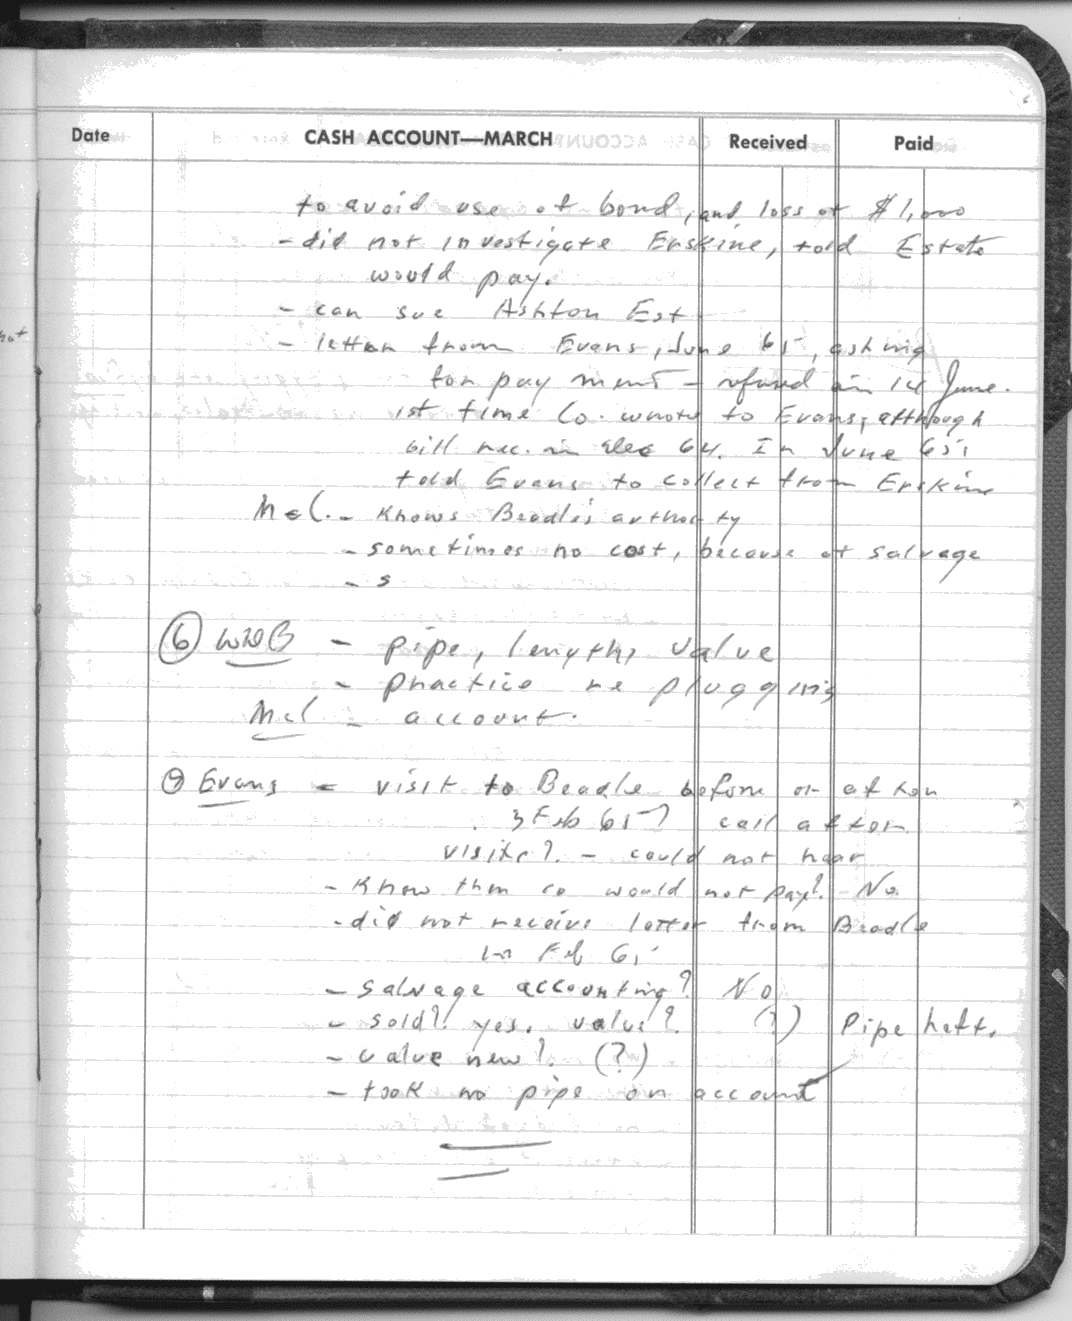 Date CASH ACCOUNT—MARCH Received Paid
to avoid use of bond, and loss of $1,000
- did not investigate Erskine, told Estate
would pay.
- can sue Ashton Est
- letter from Evans, June 65, asking
for payment - refused in 14 June.
1st time Co. wrote to Evans, although
bill rec. in Dec 64. In June 65,
told Evans to collect from Erskine
McL. - Knows Beadle's authority
- sometimes no cost, because of salvage
- s
⑥ WDB - pipe, lengths, value
- practice re plugging
McL - account.
⑦ Evans - visit to Beadle before or after
3 Feb 65? call after
visits? - could not hear
- Know then co would not pay? - No
- did not receive letter from Beadle
in Feb 65
- salvage accounting? No
- sold? yes. value? (?) Pipe left.
- value new? (?)
- took no pipe on account